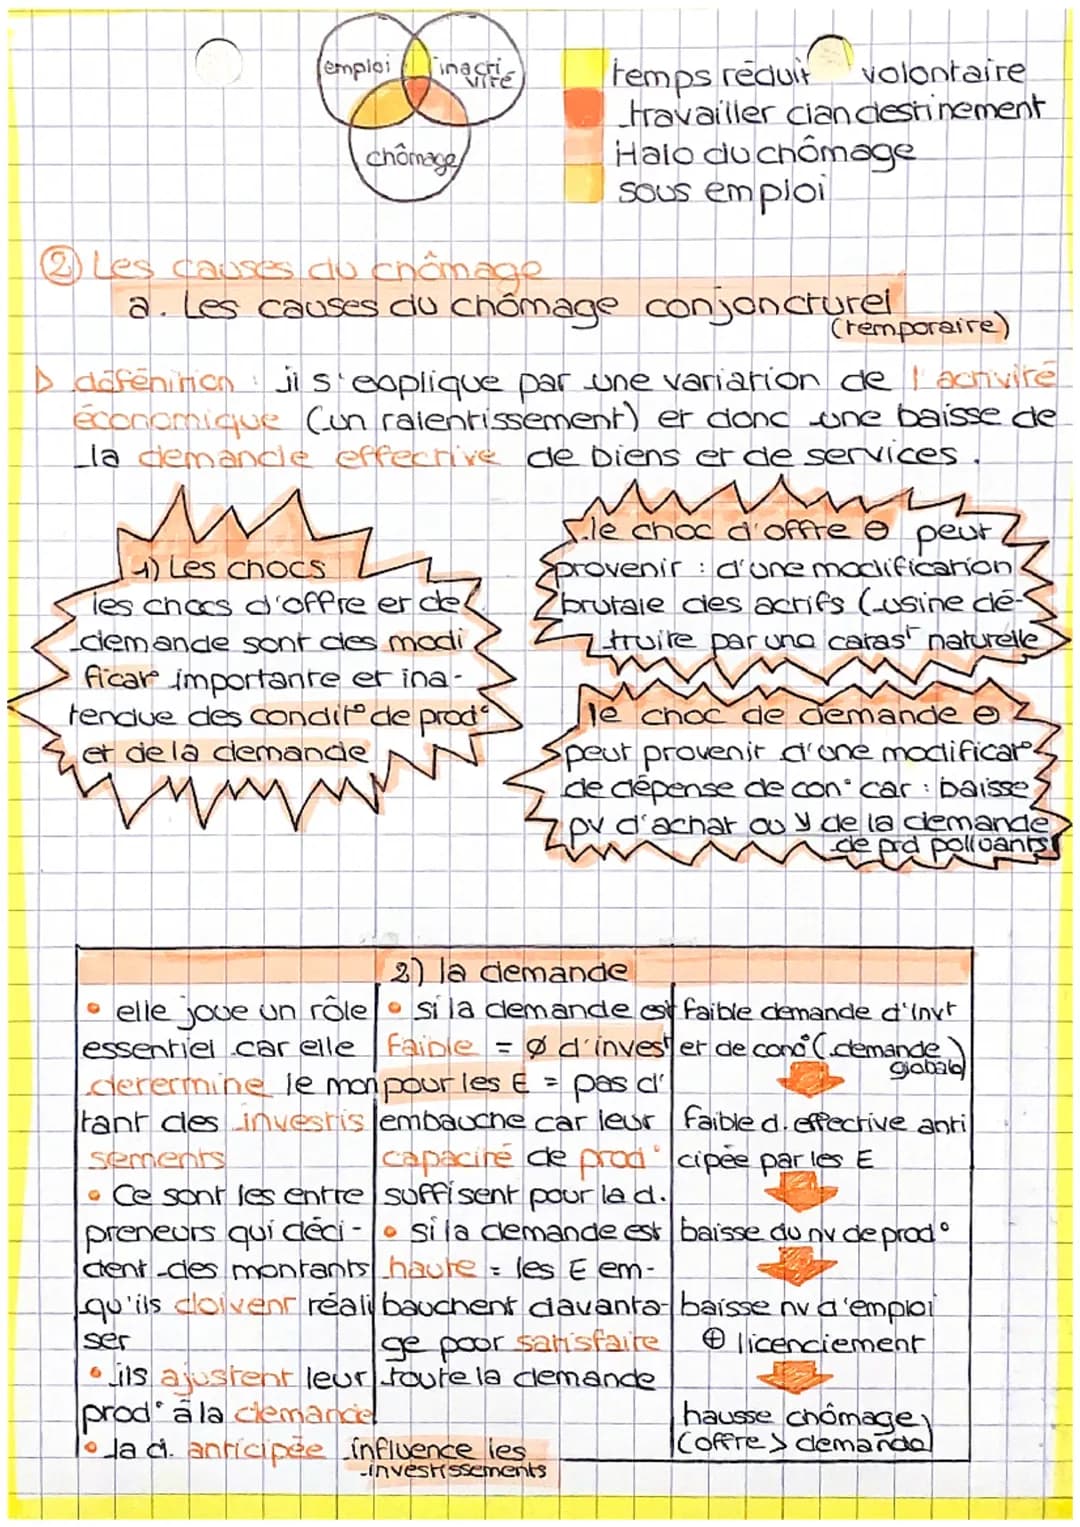 emploi
inacti
vité
chômage
temps réduit volontaire
travailler clandestinement
Halo du chômage
sous emploi
② Les causes du chômage
a. Les causes du chômage conjoncturel
(temporaire)
▷ défénition : il s'explique par une variation de l'activité
économique (un ralentissement) et donc une baisse de
la demande effective de biens et de services.
1) Les chocs
les chocs d'offre et de
demande sont des modi
ficat° importante et ina-
tendue des condit° de prod°
et de la demande
le choc d'offre ⊖ peut
provenir : d'une modification
brutale des actifs (usine dé-
truite par une catast naturelle
le choc de demande ⊖
peut provenir d'une modificat°
de dépense de con° car : baisse
pv d'achat ou ↘ de la demande
de prd polluants
2) la demande
• elle joue un rôle
essentiel car elle
determine le mon
tant des investis
sements
• Ce sont les entre
preneurs qui déci-
dent des montants
qu'ils doivent réali
ser
• ils ajustent leur
prod° à la demande
• la d. anticipée influence les
investissements
• si la demande est
faible = Ø d'invest
pour les E = pas d'
embauche car leur
capacité de prod°
suffisent pour la d.
• si la demande est
haute = les E em-
bauchent davanta-
ge poor satisfaire
toute la demande
faible demande d'invt
et de cons° (demande
globale)
faible d. effective anti
cipée par les E
baisse du nv de prod°
baisse nv d'emploi
⊕ licenciement
hausse chômage
(offre > demande)